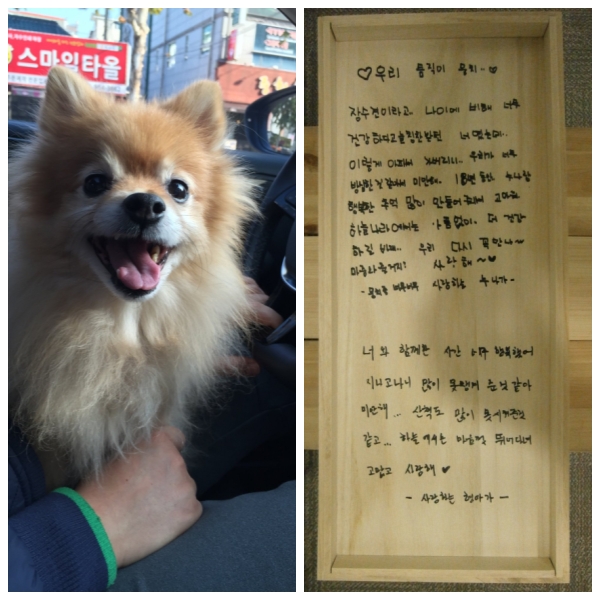 스마일타올
♡우리 몽직이 몽히..♡
장수견이라고. 나이에 비해 너무
건강하다고 칭찬받던 너였는데..
이렇게 아파서 가버리니.. 우리가 너무
방심한것같애 미안해. 18년 동안 누나랑
행복한 추억 많이 만들어줘서 고마워
하늘나라에서는 아픔없이. 더 건강
하길 바래.. 우리 다시 꼭 만나~
마중나올거지? 사랑해~♥
사랑하는 누나가-
너와 함께한 시간 너무 행복했어
지나고나니 많이 못챙겨 준것 같아
미안해... 산책도 많이 못시켜준것
같고... 하늘에서는 마음껏 뛰어다녀
고맙고 사랑해♥
- 사랑하는 형아가 -